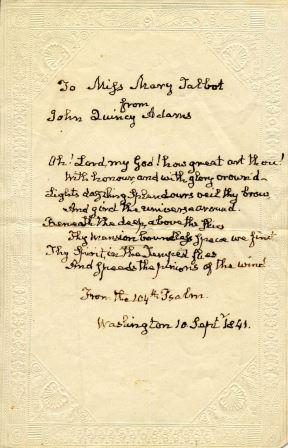 To Miss Mary Talbot
from
John Quincy Adams
Oh! Lord, my God! how great art thou!
With honour and with glory crown'd
Light's dazzling splendours veil thy brow
And gird the universe around.
Beneath the deep, above the skies
Thy mansion boundless space we find
Thy Spirit in the Tempest flies
And speeds the pinions of the wind
From the 104th Psalm.
Washington 10 Septr 1841.